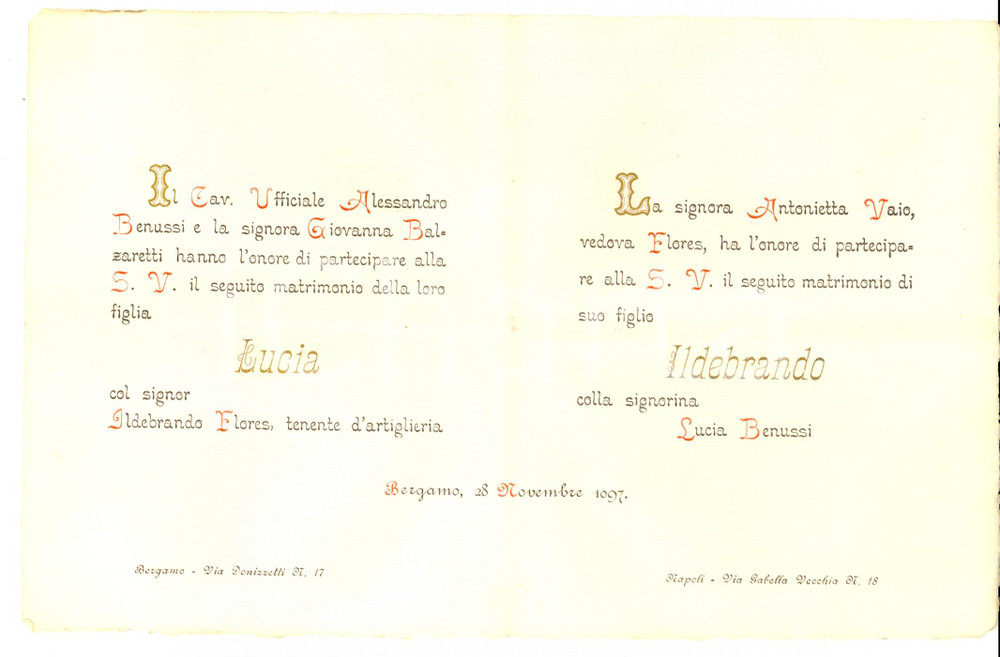 Il Cav. Ufficiale Alessandro
Benussi e la signora Giovanna Bal=
zaretti hanno l'onore di partecipare alla
S. V. il seguito matrimonio della loro
figlia
Lucia
col signor
Ildebrando Flores, tenente d'artiglieria
La signora Antonietta Vaio,
vedova Flores, ha l'onore di partecipa=
re alla S. V. il seguito matrimonio di
suo figlio
Ildebrando
colla signorina
Lucia Benussi
Bergamo, 28 Novembre 1897.
Bergamo - Via Donizzetti N. 17
Napoli - Via Gabella Vecchia N. 18